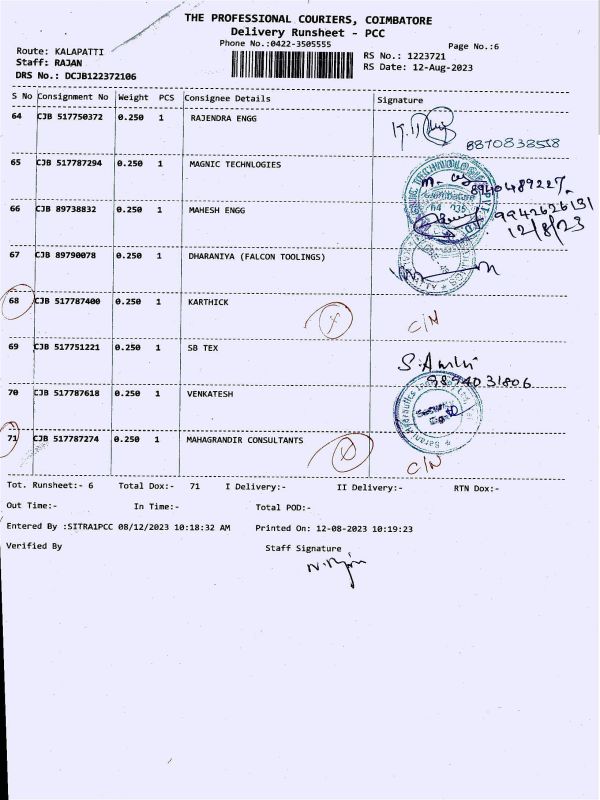 THE PROFESSIONAL COURIERS, COIMBATORE
Delivery Runsheet - PCC
Phone No.:0422-3505555
Page No.:6
Route: KALAPATTI
Staff: RAJAN
DRS No.: DCJB122372106
RS No.: 1223721
RS Date: 12-Aug-2023
S No Consignment No Weight PCS Consignee Details Signature
64 CJB 517750372 0.250 1 RAJENDRA ENGG
8870838558
65 CJB 517787294 0.250 1 MAGNIC TECHNLOGIES
8940489227
66 CJB 89738832 0.250 1 MAHESH ENGG
9942626131
12/8/23
67 CJB 89790078 0.250 1 DHARANIYA (FALCON TOOLINGS)
68 CJB 517787400 0.250 1 KARTHICK
C/N
69 CJB 517751221 0.250 1 SB TEX
9894031806
70 CJB 517787618 0.250 1 VENKATESH
71 CJB 517787274 0.250 1 MAHAGRANDIR CONSULTANTS
C/N
Tot. Runsheet:- 6 Total Dox:- 71 I Delivery:- II Delivery:- RTN Dox:-
Out Time:- In Time:- Total POD:-
Entered By :SITRA1PCC 08/12/2023 10:18:32 AM Printed On: 12-08-2023 10:19:23
Verified By Staff Signature